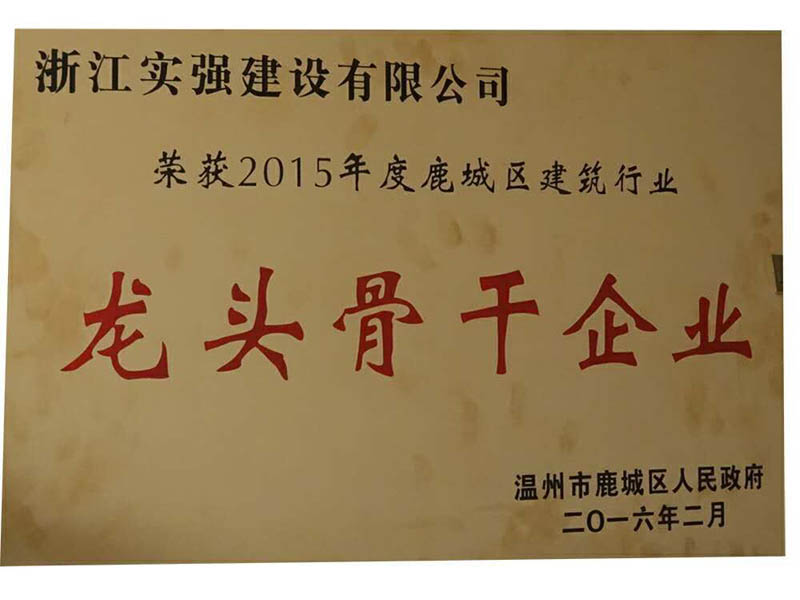 浙江实强建设有限公司
荣获2015年度鹿城区建筑行业
龙头骨干企业
温州市鹿城区人民政府
二〇一六年二月